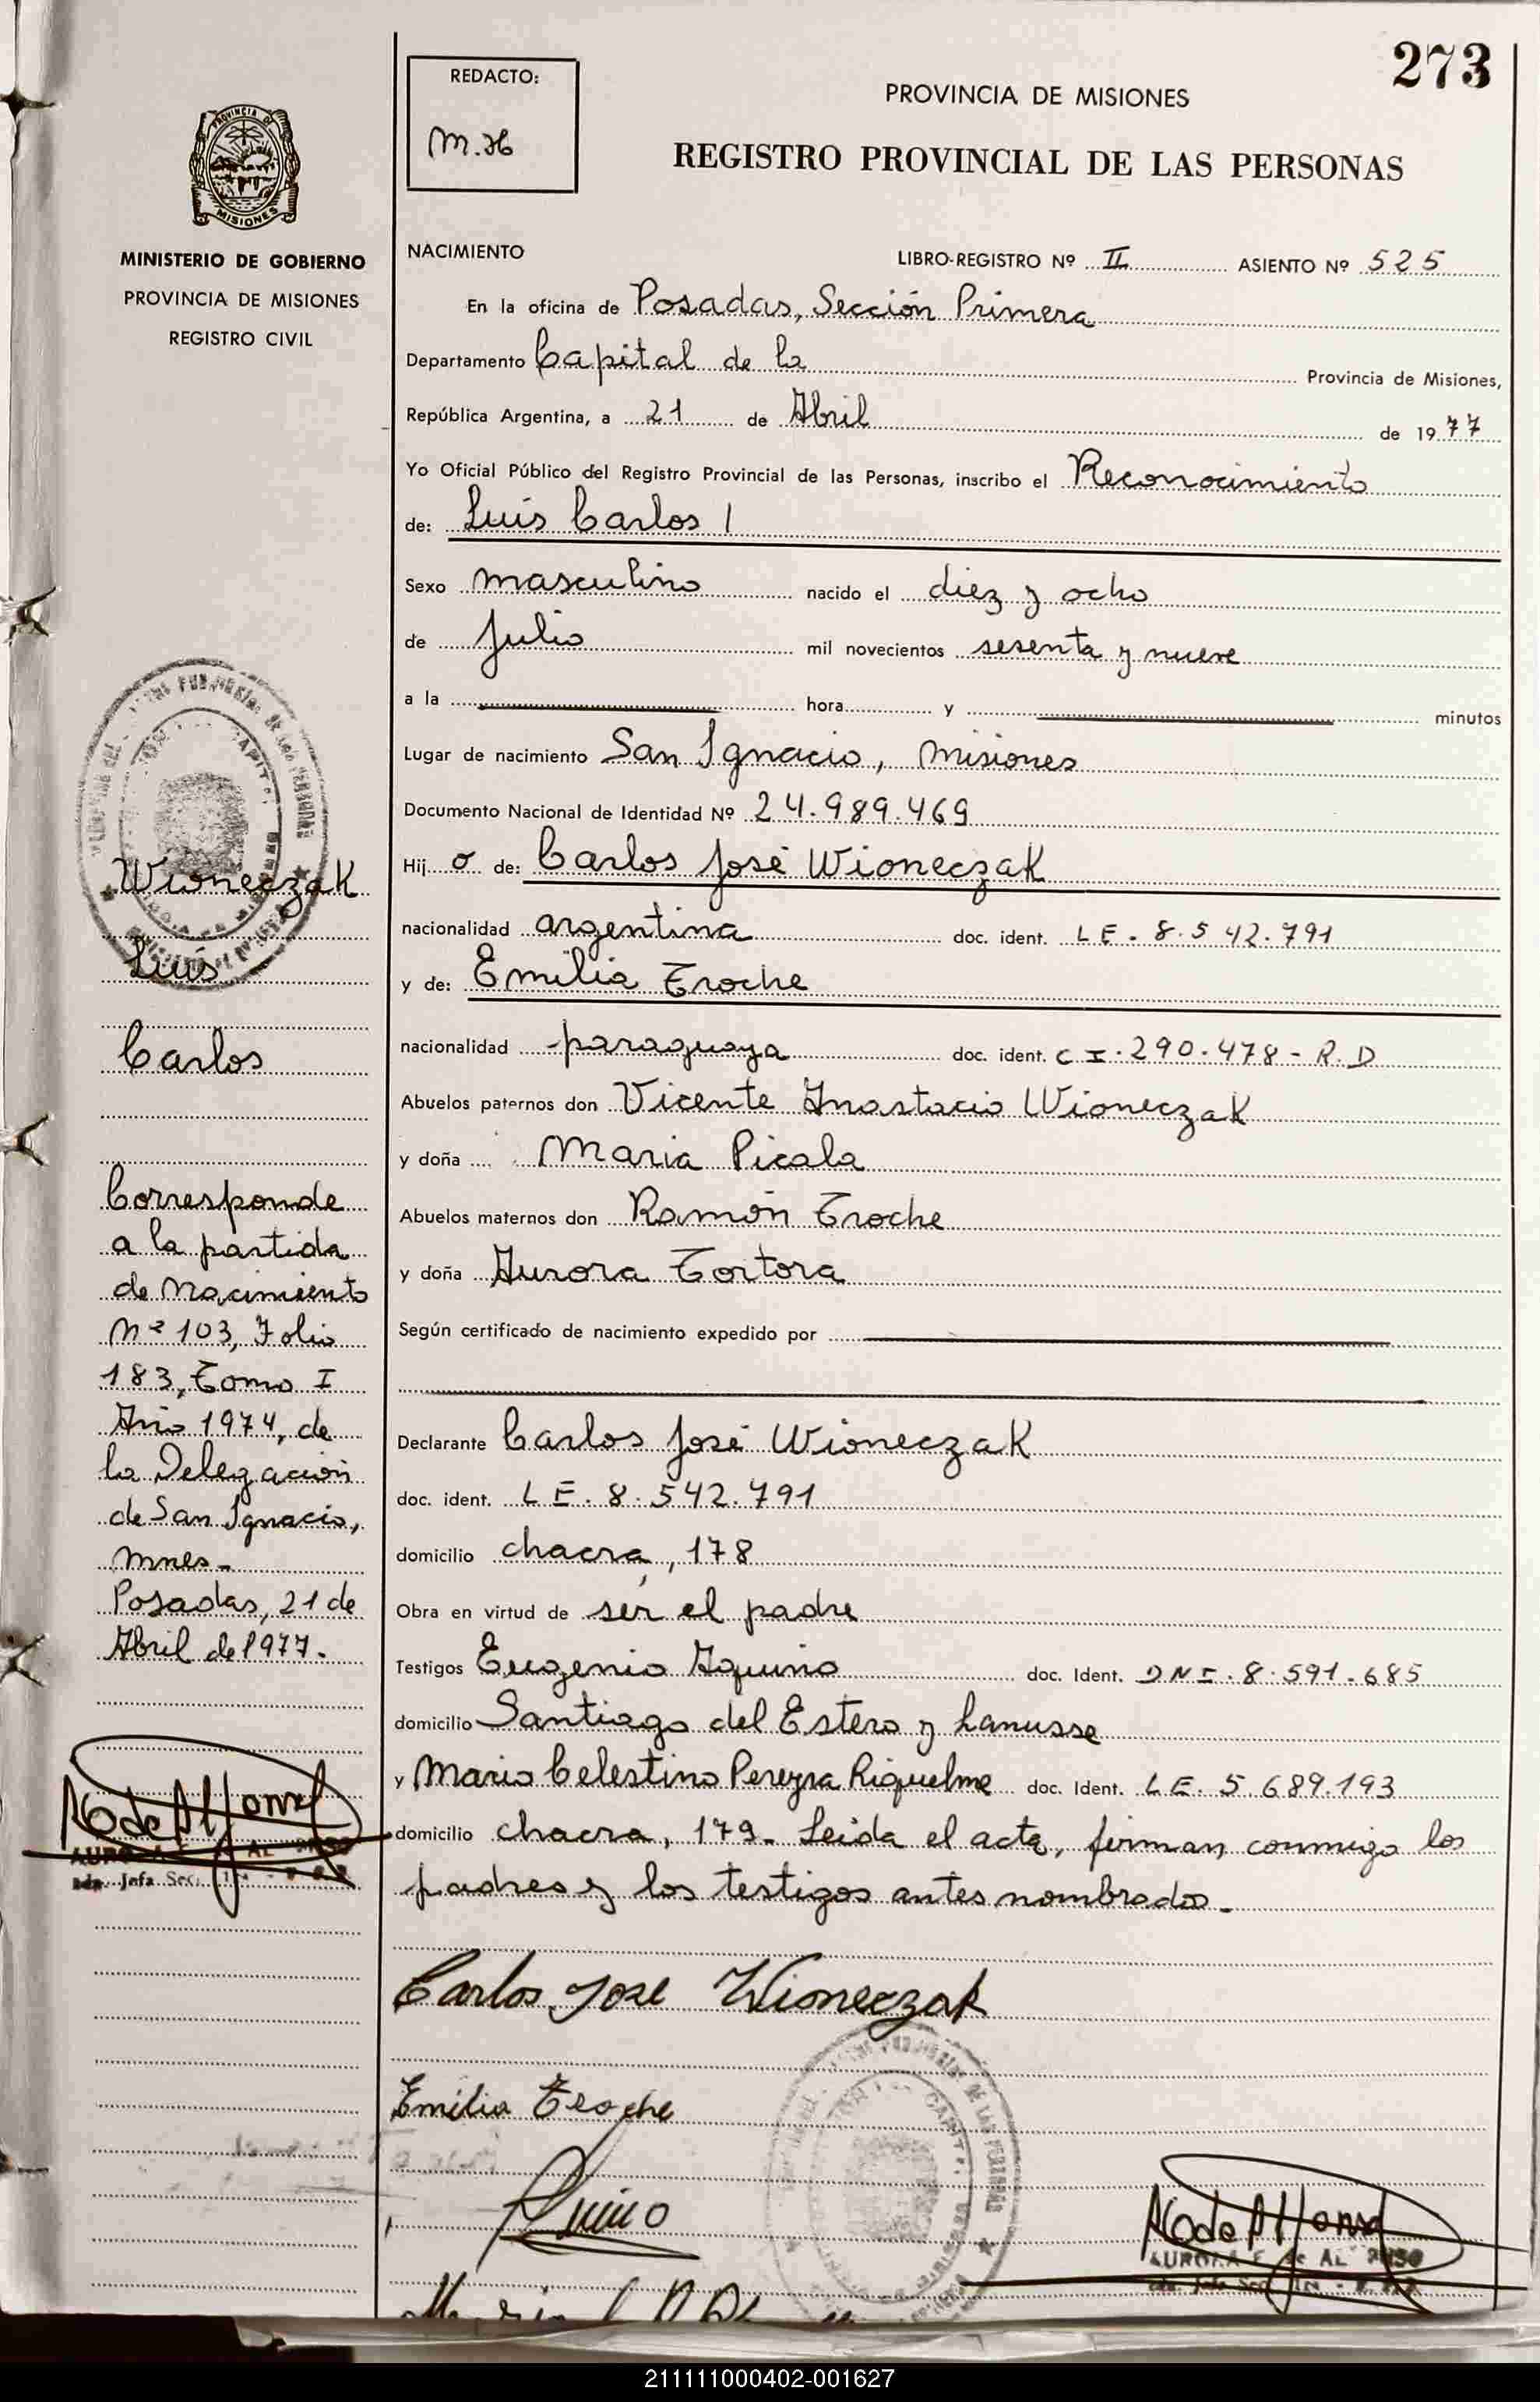 273
REDACTO:
M.H
PROVINCIA DE MISIONES
REGISTRO PROVINCIAL DE LAS PERSONAS
MINISTERIO DE GOBIERNO
PROVINCIA DE MISIONES
REGISTRO CIVIL
NACIMIENTO
LIBRO-REGISTRO Nº II ASIENTO Nº 525
En la oficina de Posadas, Sección Primera
Departamento Capital de la Provincia de Misiones,
República Argentina, a 21 de Abril de 1977
Yo Oficial Público del Registro Provincial de las Personas, inscribo el Reconocimiento
de: Luis Carlos /
Sexo masculino nacido el diez y ocho
de Julio mil novecientos sesenta y nueve
a la hora y minutos
Lugar de nacimiento San Ignacio, Misiones
Documento Nacional de Identidad Nº 24.989.469
Hij o de: Carlos José Wioneczak
nacionalidad argentina doc. ident. L E. 8.542.791
y de: Emilia Troche
nacionalidad paraguaya doc. ident. C I. 290.478 - R. D
Abuelos paternos don Vicente Anastacio Wioneczak
y doña Maria Picala
Abuelos maternos don Ramón Troche
y doña Aurora Tortora
Según certificado de nacimiento expedido por
Declarante Carlos José Wioneczak
doc. ident. L E. 8.542.791
domicilio chacra, 178
Obra en virtud de ser el padre
Testigos Eugenio Aquino doc. Ident. D N I. 8.591.685
domicilio Santiago del Estero y Lanusse
y Mario Celestino Pereyra Riquelme doc. Ident. L E. 5.689.193
domicilio chacra, 179. Leida el acta, firman conmigo los
padres y los testigos antes nombrados.
Wioneczak
Luis
Carlos
Corresponde
a la partida
de Nacimiento
Nº 103, Folio
183, Tomo I
Año 1974, de
la Delegación
de San Ignacio,
Mnes.
Posadas, 21 de
Abril de 1977.
Carlos Jose Wioneczak
Emilia Troche
211111000402-001627